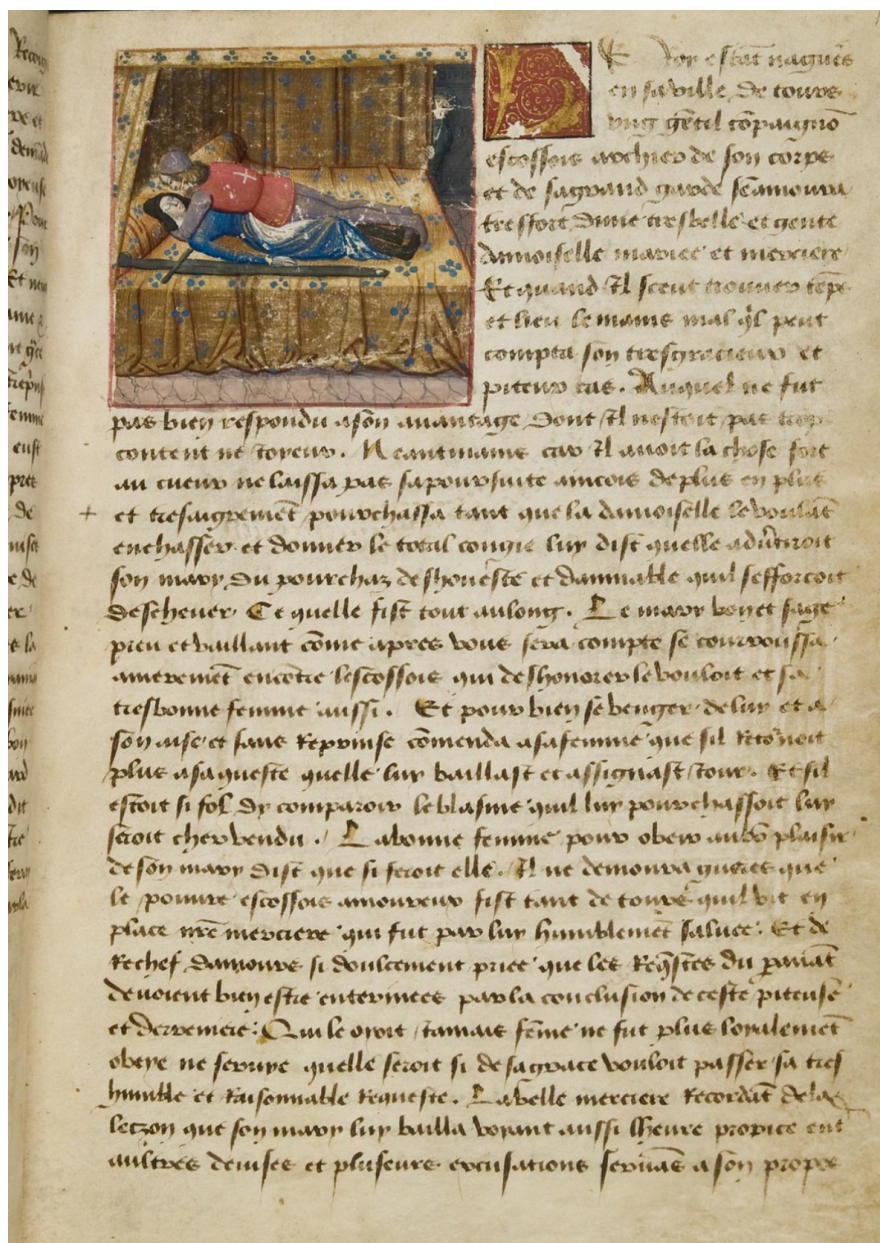 Le Roy estãt nagueres
en sa ville de tours
ung gẽtil cõpaignõ
escossois archier de son corps
et de sa grand garde sẽamoura
tresfort dune tresbelle et gente
damoiselle mariee et merciere
Et quand il sceut trouuer tẽps
et lieu le mains mal q̃l peut
compta son tresgracieux et
piteux cas. Auquel ne fut
pas bien respondu a son auantage dont il nestoit pas trop
content ne Joyeux. Neantmains car il auoit la chose fort
au cueur ne laissa pas sa poursuite aincois de plus en plus
et tresaigremẽt pourchassa tant que la damoiselle le voulãt
enchasser et donner le total congie luy dist quelle aduertiroit
son mary du pourchaz deshoneste et damnable quil sefforcoit
descheuer. Ce quelle fist tout au long. Le mary bon et saige
preu et vaillant cõme apres vous sera compte se courroussa
ameremẽt encõtre lescossois qui deshonorer le vouloit et sa
tresbonne femme aussi. Et pour bien se venger de luy et a
son aise et sans reprinse cõmenda a sa femme que sil retornoit
plus a sa queste quelle luy baillast et assignast Jour. Et sil
estoit si fol dy comparoir le blasme quil luy pourchassoit luy
seroit cher vendu. La bonne femme pour obeir au bõ plaisir
de son mary dist que si feroit elle. Il ne demoura gueres que
le pouure escossois amoureux fist tant de tours quil vit en
place nr̃e merciere qui fut par luy humblemẽt saluee. Et de
Rechef damours si doulcement priee que les Reqstes du parauãt
deuoient bien estre enterinees par la conclusion de ceste piteuse
et derreniere. Qui le oyoit Jamais fẽme ne fut plus loyalemẽt
obeye ne seruye quelle seroit si de sa grace vouloit passer sa tres
humble et Raisonnable Requeste. La belle merciere Recordãt de la
leczon que son mary luy bailla voyant aussi lheure propice ent
aultres deuises et pluseurs excusations seruãs a son propos